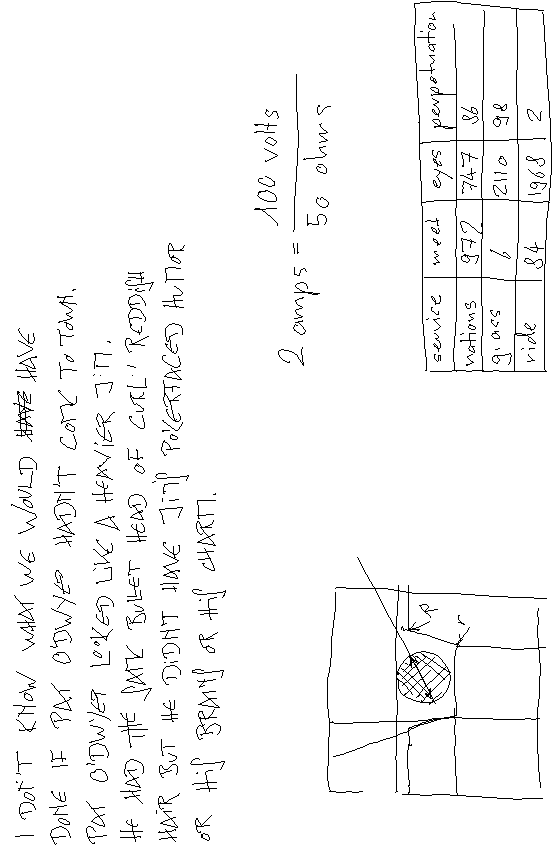 I DON'T KNOW WHAT WE WOULD HAVE HAVE
DONE IF PAT O'DWYER HADN'T COME TO TOWN.
PAT O'DWYER LOOKED LIKE A HEAVIER JIM.
HE HAD THE SAME BULLET HEAD OF CURLY REDDISH
HAIR BUT HE DIDN'T HAVE JIM'S POKERFACED HUMOR
OR HIS BRAINS OR HIS CHARM.
2 amps = 100 volts
50 ohms
service meet eyes perpetuation
nations 972 747 86
glass 6 2110 98
ride 84 1968 2
r